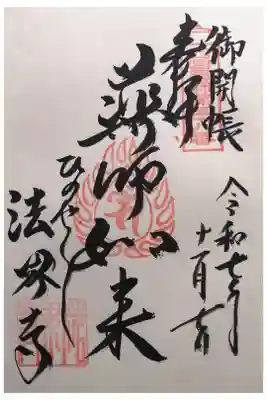 御開帳
令和七年
十一月
奉拝
薬師如来
ひのやくし
法界寺